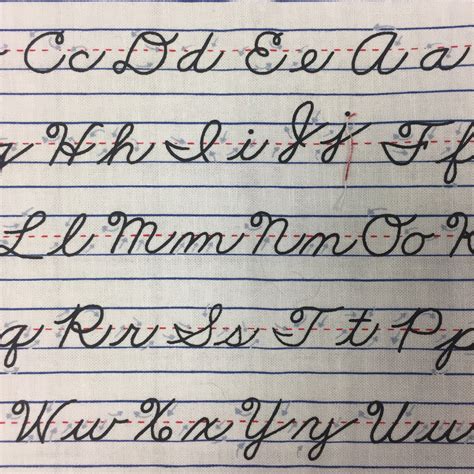 Cc Dd Ee A a
g Hh Ii Jj F f
Ll Mm Nn Oo K
q Rr Ss Tt Pp
Ww Xx Yy Uu